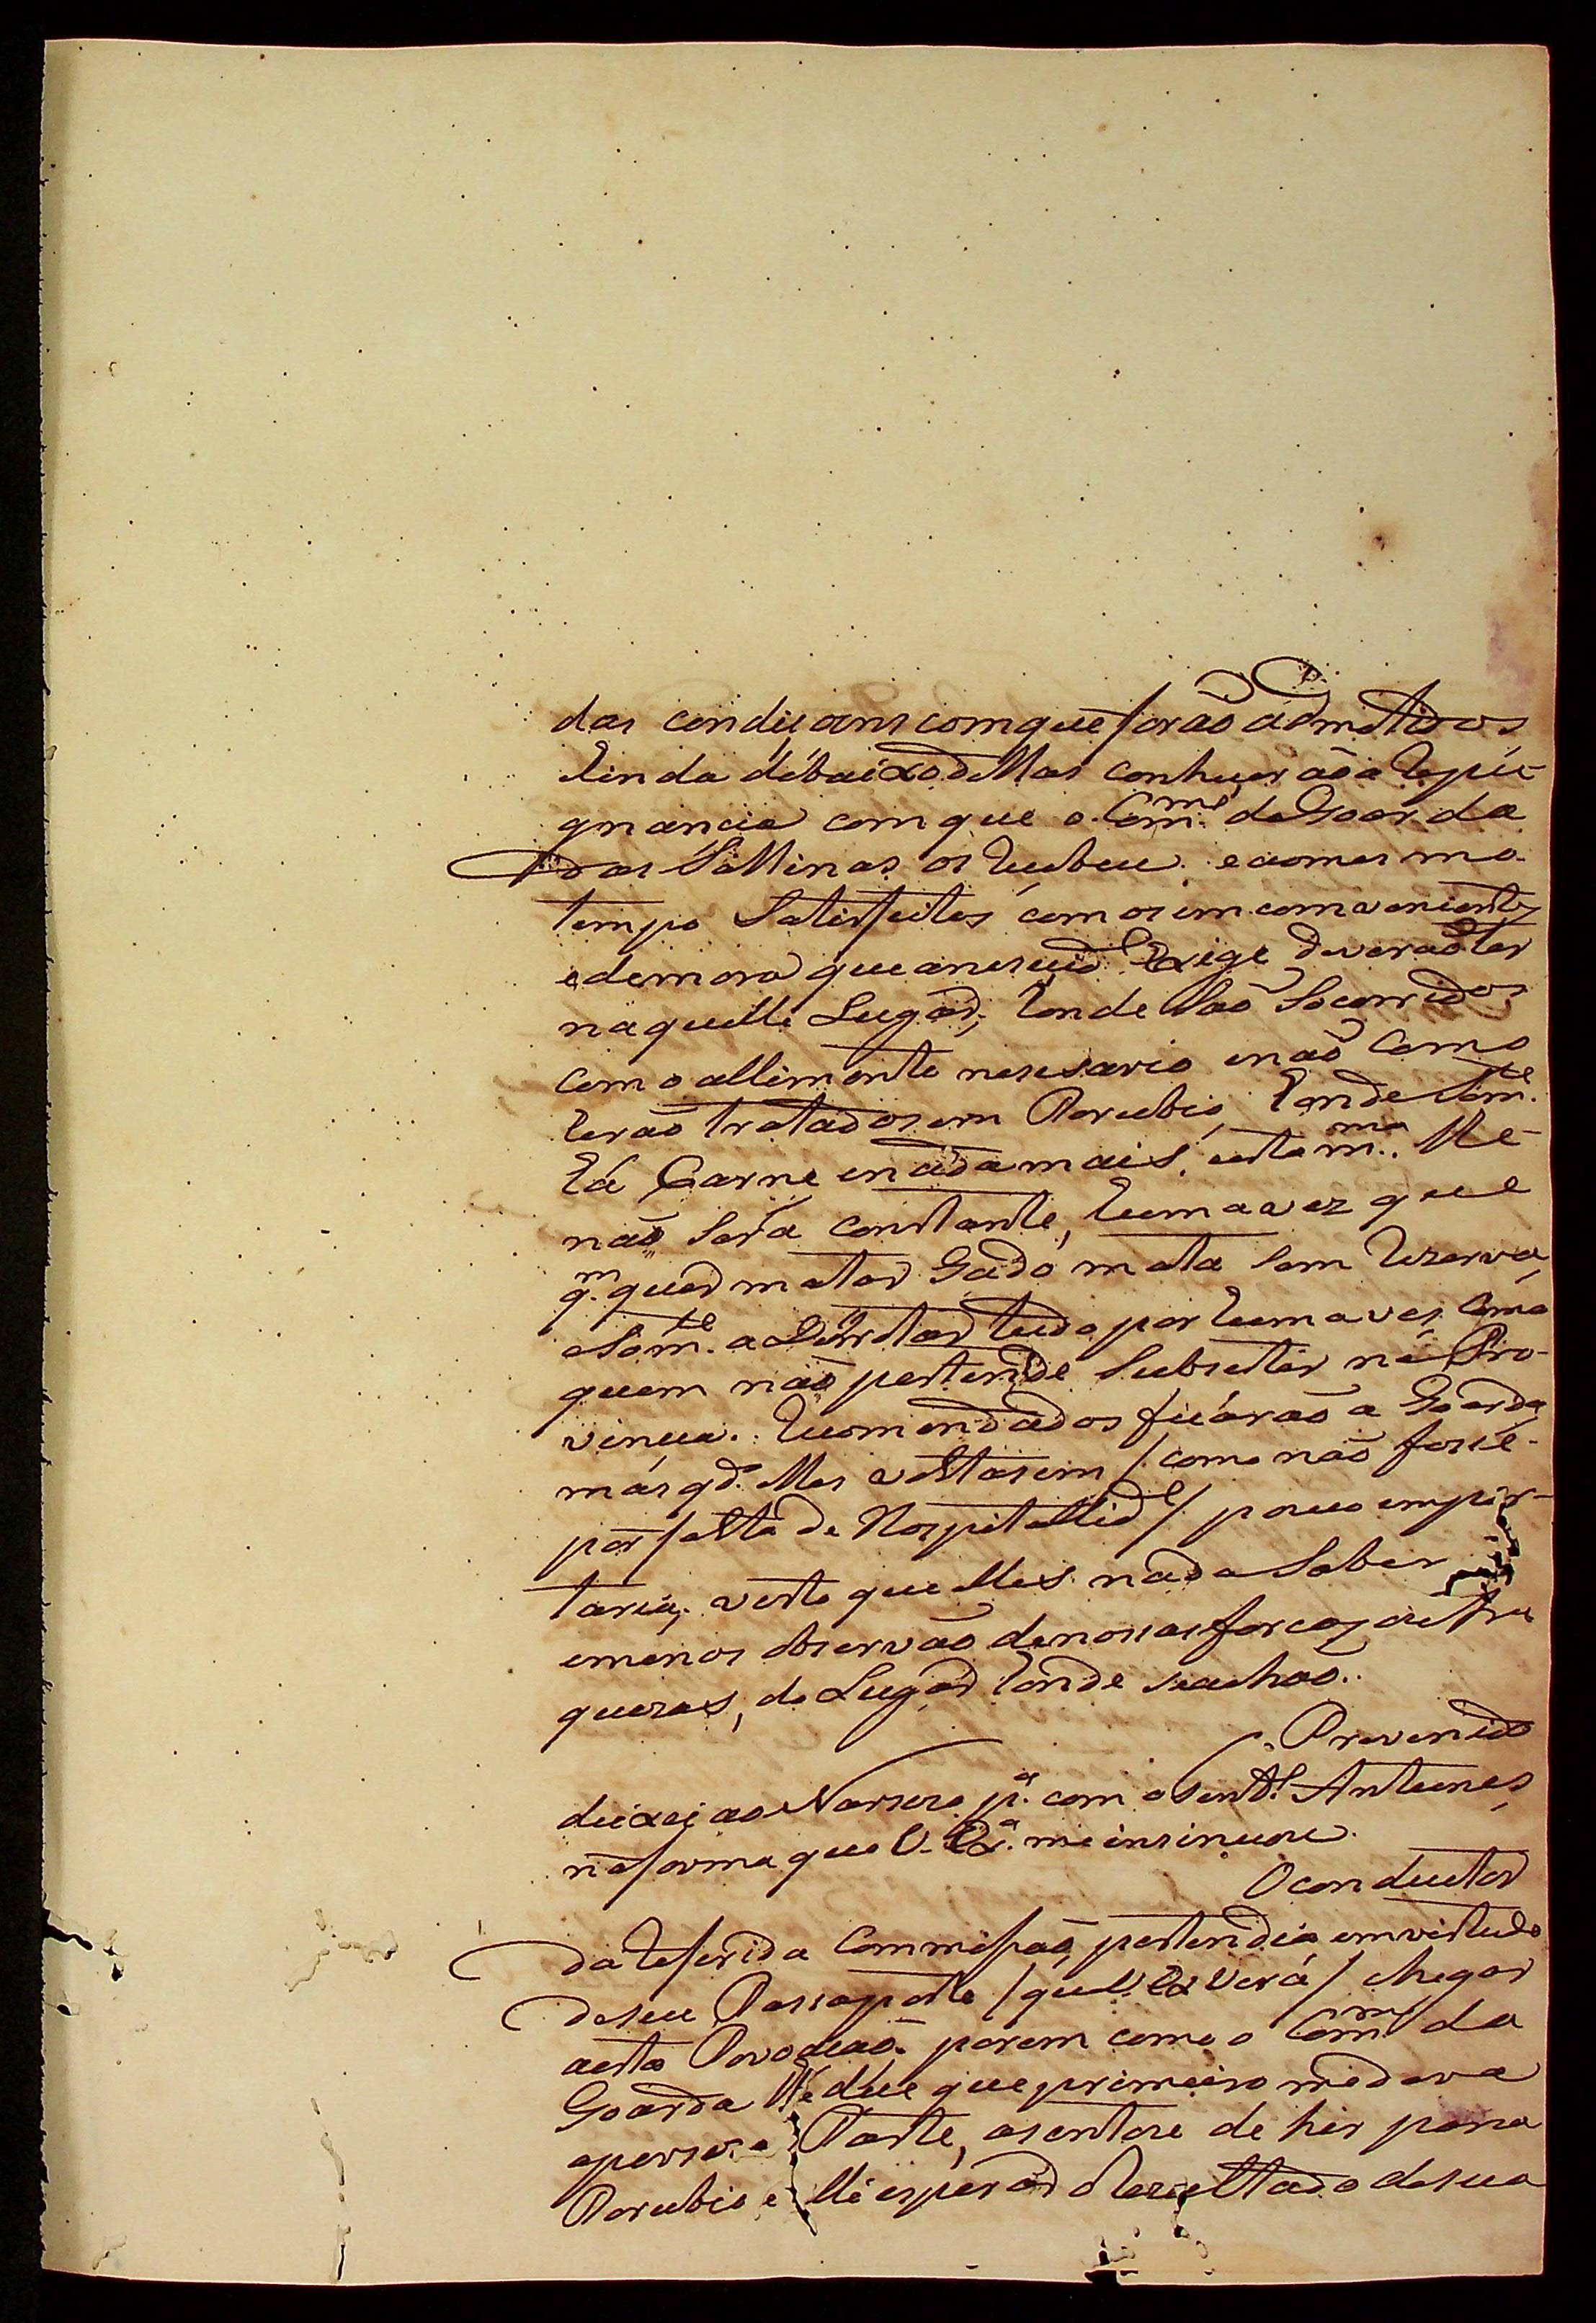 das condiçoens com que forão admetidos
e inda debaixo dellas conhecerão a repu-
gnancia com que o Com.me da Goarda
das Sallinas os recebeu. e ao mesmo
tempo Satisfeitos com os imcomvenientes
e demora que anesecid.e exige deverão ter
naquelle Lugar; honde São Socorridos
com o allimento nesesario enão Como
Serão tratados em Perubio, honde Som.te
há Carne enada mais, esta m.ma lhe
não Será constante, huma vez que
q.m quer matar Gado mata Sem rezerva
e Som.te a derrotar tudo por huma ves, Como
quem não pertende Subsistir na Pro-
vincia. Recomendados ficárão a Goarda
mas q.do elles voltasem / como não fose
por falta de Hospitallid.e / pouco empor-
taria, visto que elles nada Sabem
emenos observão de nossas forcas afra
quezas, do Lugar honde se achão.
Prevenido
deixei ao Narsizo p.a com o Sento.l Antunes,
na forma que V. Ex.a me insinuou.
O conductor
da referida Commissão, pertendia em vertude
de seu Passaporte / que V. Ex. Verá / chegar
aesta Povoação. porem como o Com.me da
Goarda lhe dice que primeiro me dava
a persiza Parte, asentou de hir para
Perubio e lli esperar o Rezultado de sua